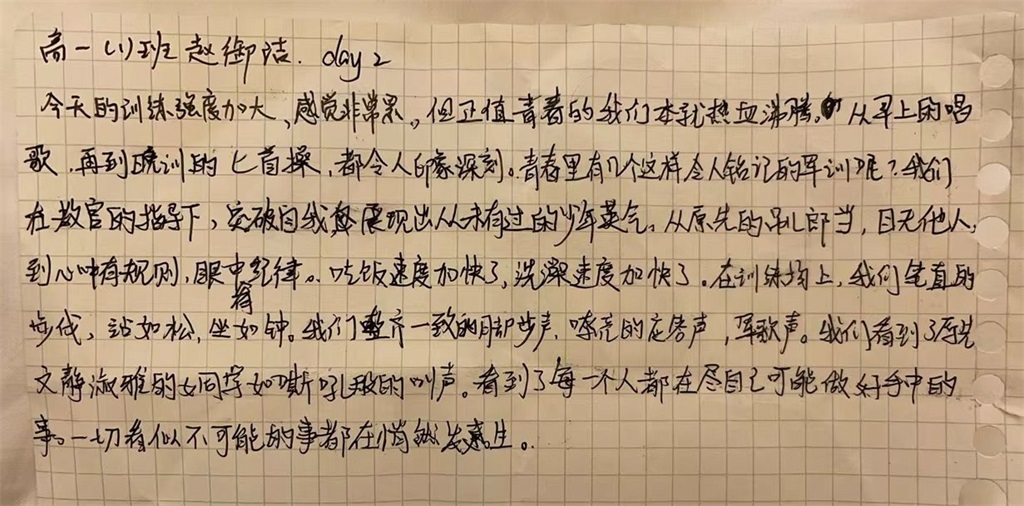 高一(1)班 赵御洁. day 2
今天的训练强度加大、感觉非常累。但正值青春的我们本就热血沸腾。从早上的唱
歌.再到晚训的匕首操,都令人印象深刻。青春里有几个这样令人铭记的军训呢?我们
在教官的指导下,突破自我展现出从未有过的少年英气。从原先的吊儿郎当,目无他人,
到心中有规则,眼中有纪律。吃饭速度加快了,洗澡速度加快了.在训练场上,我们笔直的
步伐,站如松,坐如钟。我们整齐一致的脚步声.嘹亮的应答声,军歌声。我们看到了原先
文静淑雅的女同学如斯吼般的叫声。看到了每一个人都在尽自己可能做好手中的
事。一切看似不可能的事都在悄然发生。